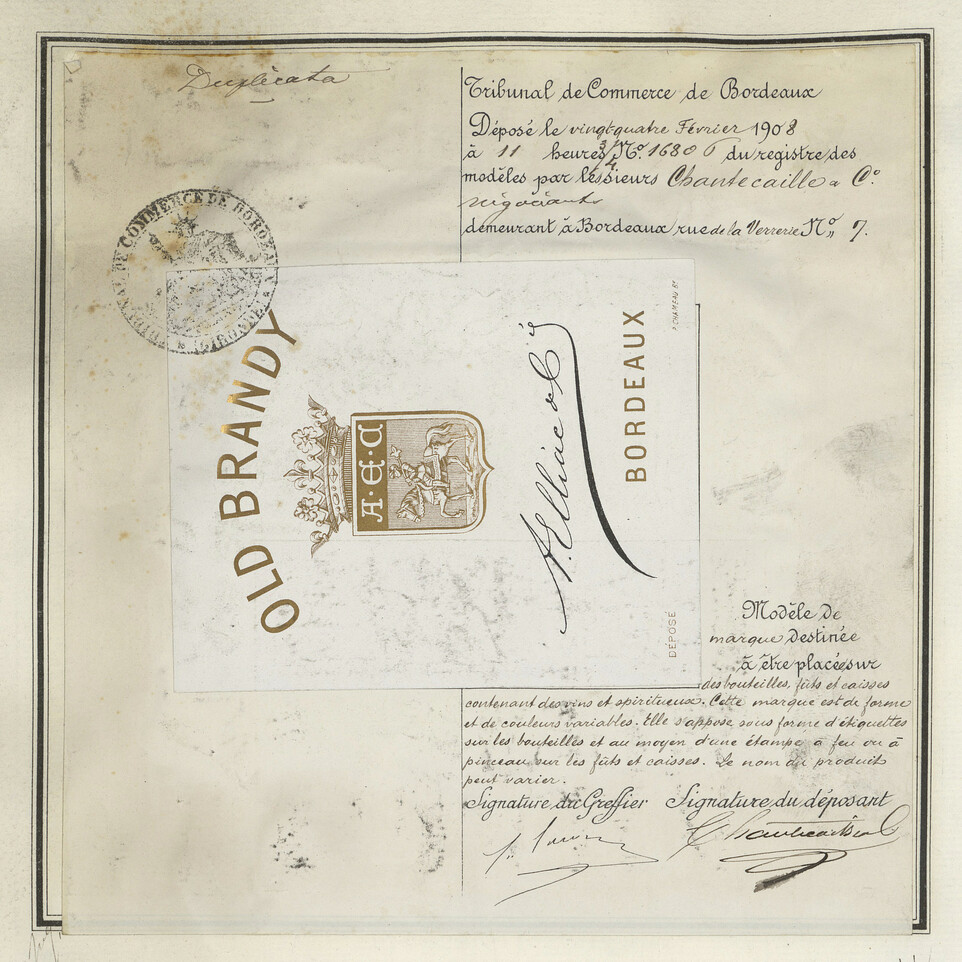 Duplicata
Tribunal de Commerce de Bordeaux
Déposé le vingt-quatre Février 1908
à 11 heures 3/4 No. 16806 du registre des
modèles par les sieurs Chantecaille & Co.
négociants
demeurant à Bordeaux rue de la Verrerie No 7.
TRIBUNAL DE COMMERCE DE BORDEAUX
(GIRONDE)
OLD BRANDY
A·E·C
A. Elliac & Cie
BORDEAUX
DÉPOSÉ
Modèle de
marque destinée
à être placée sur
des bouteilles, fûts et caisses
contenant des vins et spiritueux. Cette marque est de forme
et de couleurs variables. Elle s'appose sous forme d'étiquettes
sur les bouteilles et au moyen d'une étampe à feu ou à
pinceau sur les fûts et caisses. Le nom du produit
peut varier.
Signature du Greffier Signature du déposant